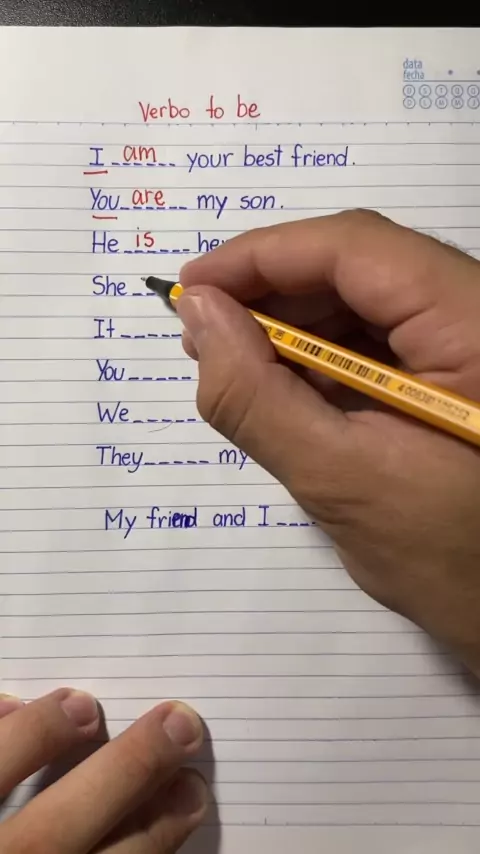 data
fecha
Verbo to be
I am your best friend.
You are my son.
He is
She
It
You
We
They my
My friend and I